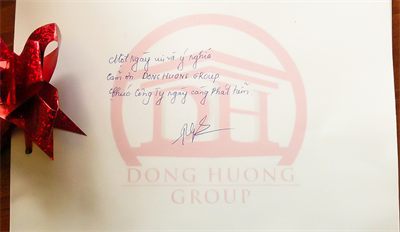 Một ngày vui và ý nghĩa
Cảm ơn DONG HUONG GROUP
Chúc Công ty ngày càng phát triển
DONG HUONG
GROUP